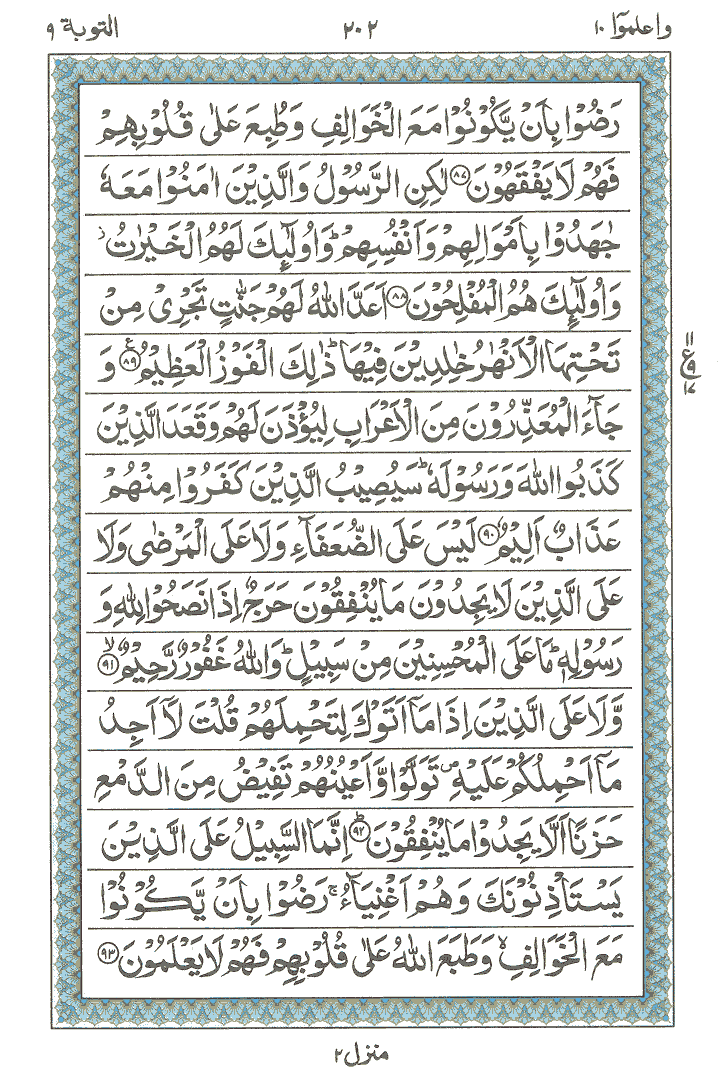 واعلموۤا ۱۰ ۲۰۲ التوبة ۹
رَضُوْا بِاَنْ يَّكُوْنُوْا مَعَ الْخَوَالِفِ وَطُبِعَ عَلٰى قُلُوْبِهِمْ
فَهُمْ لَا يَفْقَهُوْنَ ۝۸۷ لٰكِنِ الرَّسُوْلُ وَالَّذِيْنَ اٰمَنُوْا مَعَهٗ
جٰهَدُوْا بِاَمْوَالِهِمْ وَاَنْفُسِهِمْ ؕ وَاُولٰٓئِكَ لَهُمُ الْخَيْرٰتُ ز
وَاُولٰٓئِكَ هُمُ الْمُفْلِحُوْنَ ۝۸۸ اَعَدَّ اللّٰهُ لَهُمْ جَنّٰتٍ تَجْرِىْ مِنْ
تَحْتِهَا الْاَنْهٰرُ خٰلِدِيْنَ فِيْهَا ؕ ذٰلِكَ الْفَوْزُ الْعَظِيْمُ ۝۸۹ ع وَ
۱۱ ع ۹ ۱۷
جَآءَ الْمُعَذِّرُوْنَ مِنَ الْاَعْرَابِ لِيُؤْذَنَ لَهُمْ وَقَعَدَ الَّذِيْنَ
كَذَبُوا اللّٰهَ وَرَسُوْلَهٗ ؕ سَيُصِيْبُ الَّذِيْنَ كَفَرُوْا مِنْهُمْ
عَذَابٌ اَلِيْمٌ ۝۹۰ لَيْسَ عَلَى الضُّعَفَآءِ وَلَا عَلَى الْمَرْضٰى وَلَا
عَلَى الَّذِيْنَ لَا يَجِدُوْنَ مَا يُنْفِقُوْنَ حَرَجٌ اِذَا نَصَحُوْا لِلّٰهِ وَ
رَسُوْلِهٖ ؕ مَا عَلَى الْمُحْسِنِيْنَ مِنْ سَبِيْلٍ ؕ وَاللّٰهُ غَفُوْرٌ رَّحِيْمٌ ۝۹۱ لا
وَّلَا عَلَى الَّذِيْنَ اِذَا مَاۤ اَتَوْكَ لِتَحْمِلَهُمْ قُلْتَ لَاۤ اَجِدُ
مَاۤ اَحْمِلُكُمْ عَلَيْهِ ص تَوَلَّوْا وَّاَعْيُنُهُمْ تَفِيْضُ مِنَ الدَّمْعِ
حَزَنًا اَلَّا يَجِدُوْا مَا يُنْفِقُوْنَ ؕ ۝۹۲ اِنَّمَا السَّبِيْلُ عَلَى الَّذِيْنَ
يَسْتَاْذِنُوْنَكَ وَهُمْ اَغْنِيَآءُ ۚ رَضُوْا بِاَنْ يَّكُوْنُوْا
مَعَ الْخَوَالِفِ ۙ وَطَبَعَ اللّٰهُ عَلٰى قُلُوْبِهِمْ فَهُمْ لَا يَعْلَمُوْنَ ۝۹۳
منزل ۲